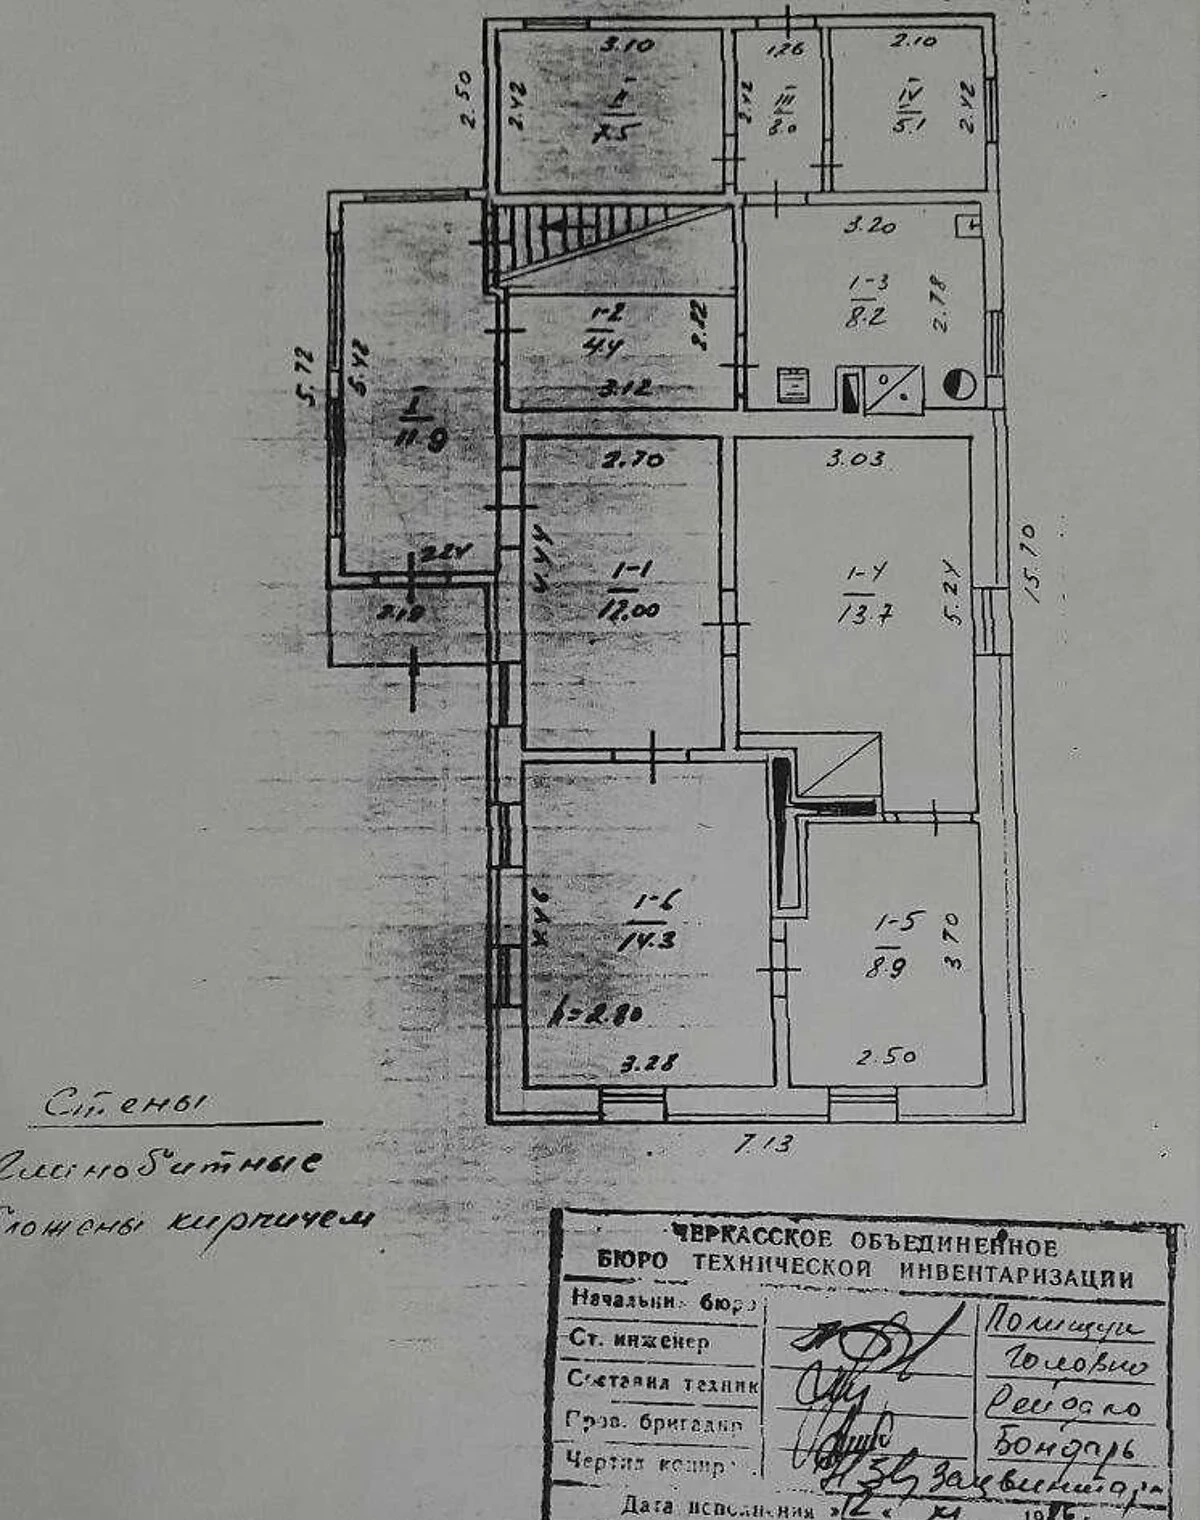 3.10
126
2.10
2.50
2.42
II
7.5
2.42
III
3.0
IV
5.1
2.42
3.20
1-3
8.2
2.78
1-2
4.4
3.12
5.72
5.42
I
11.9
2.70
3.03
4.44
1-1
12.00
1-4
13.7
5.24
15.70
2.24
2.19
1-6
14.3
1-5
8.9
3.70
h=2.80
3.28
2.50
7.13
Стены
Глинобитные
кирпичем
ЧЕРКАССКОЕ ОБЪЕДИНЕННОЕ
БЮРО ТЕХНИЧЕСКОЙ ИНВЕНТАРИЗАЦИИ
Начальник бюро Полищук
Ст. инженер Головко
Составил техник
Пров. бригадир Бондарь
Чертил копир
Дата исполнения »12« XI